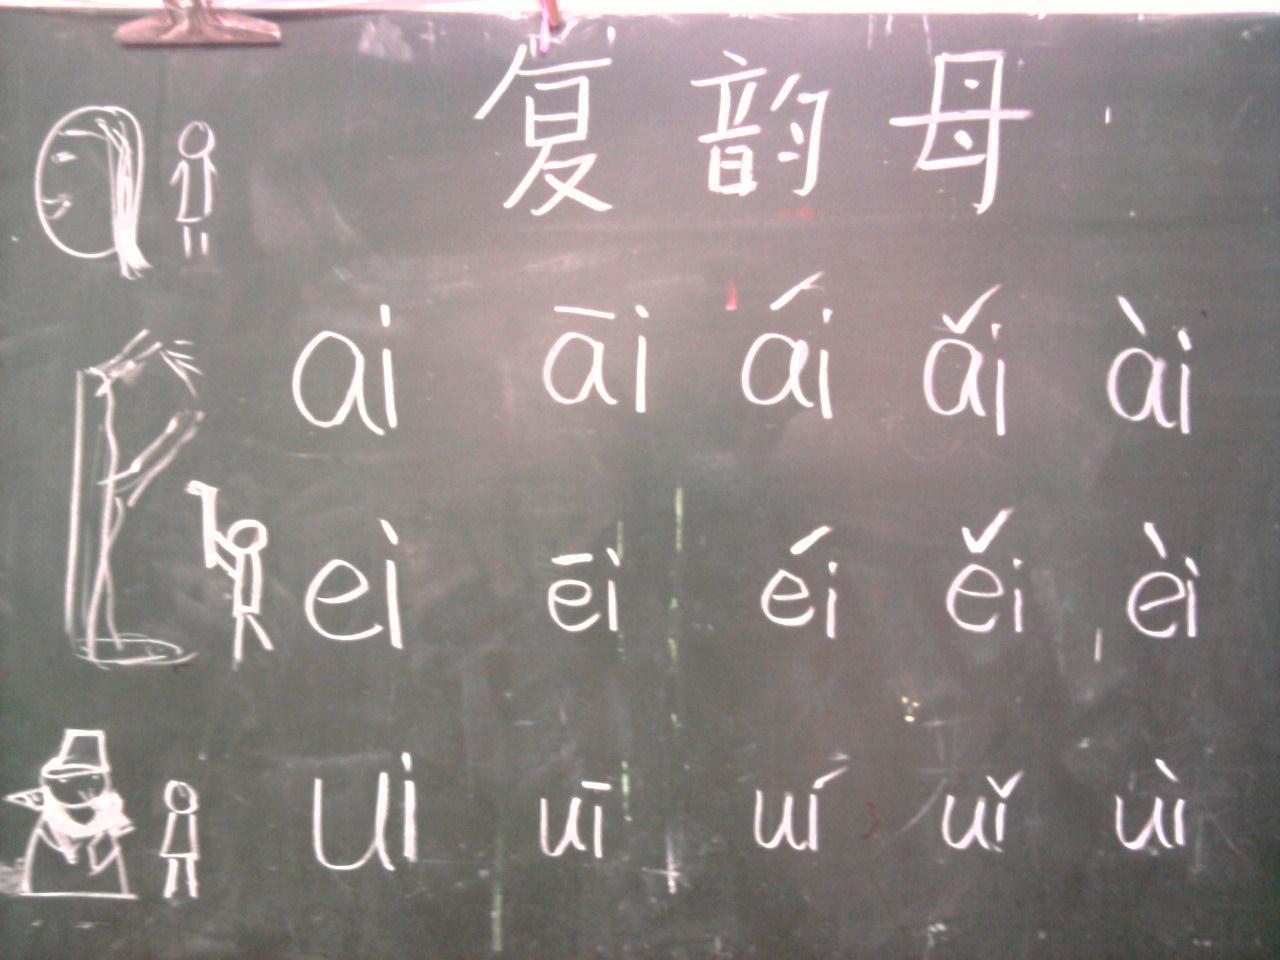 复韵母
ai āi ái ǎi ài
ei ēi éi ěi èi
ui uī uí uǐ uì